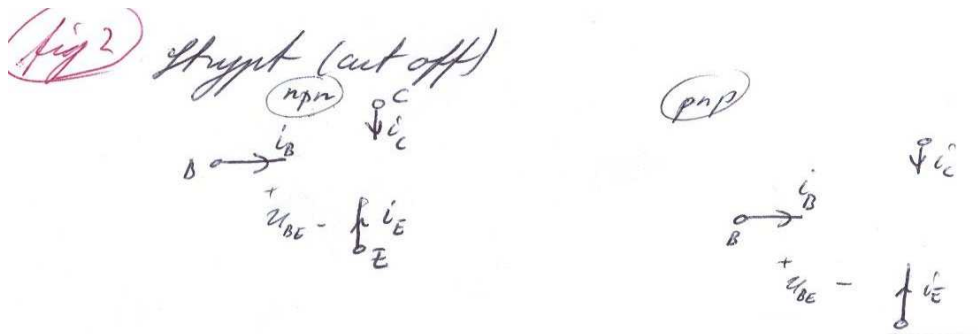 fig 2
Strypt (cut off)
npn
C
i_C
i_B
B
+
u_BE -
i_E
E
pnp
i_C
i_B
B
+
u_BE -
i_E